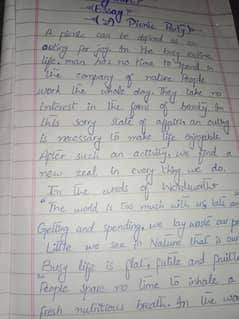 Essay
(2) Picnic Party
A picnic can be defined as an
outing for joy. In the busy
life, man has no time to spend in
the company of nature. People
work the whole day. They take no
interest in the form of beauty. In
this sorry state of affairs an outing
is necessary to make life enjoyable
After such an activity, we find a
new zeal in every thing we do.
In the words of Wordsworth
"The world is too much with us late and
Getting and spending, we lay waste our po
Little we see in Nature that is our
Busy life is flat, futile and
People spare no time to inhale a
fresh nutritious breath. In the wo